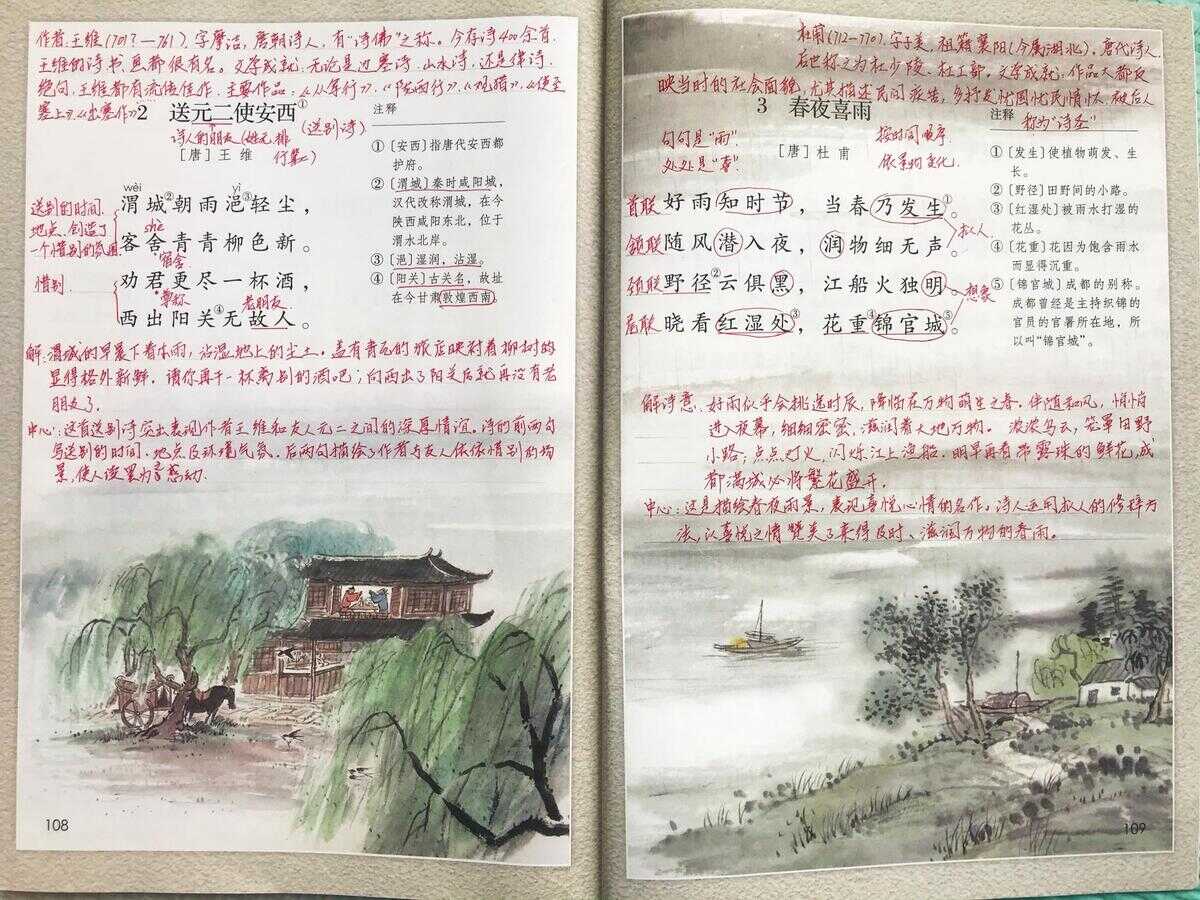 作者:王维(701?—761),字摩诘,唐朝诗人,有“诗佛”之称。今存诗400余首.
王维的诗书画都很有名。文学成就:无论是边塞诗、山水诗,还是律诗、
绝句,王维都有流传佳作.主要作品:《从军行》.《陇西行》.《观猎》.《使至
塞上》.《出塞作》
2 送元二使安西①
诗人的朋友(姓元,排
行第二)
(送别诗)
[唐] 王 维
wèi yì
渭城②朝雨浥③轻尘,
shè
客舍青青柳色新。
宿舍
劝君更尽一杯酒,
尊称
老朋友
西出阳关④无故人。
送别的时间.
地点,创造了
一个惜别的氛围.
惜别.
注释
①[安西]指唐代安西都
护府。
②[渭城]秦时咸阳城,
汉代改称渭城,在今
陕西咸阳东北,位于
渭水北岸。
③[浥]湿润,沾湿。
④[阳关]古关名,故址
在今甘肃敦煌西南。
解:渭城的早晨下着小雨,沾湿地上的尘土。盖有青瓦的旅店映衬着柳树的
显得格外新鲜.请你再干一杯离别的酒吧;向西出了阳关后就再没有老
朋友了.
中心:这首送别诗突出表现作者王维和友人元二之间的深厚情谊。诗的前两句
写送别的时间、地点及环境气氛.后两句描绘了作者与友人依依惜别的场
景,使人读罢为之感动.
108
杜甫(712—770),字子美,祖籍襄阳(今属湖北),唐代诗人
后世称之为杜少陵、杜工部.文学成就:作品大都反
映当时的社会面貌,尤其描述民间疾苦,多抒发忧国忧民情怀.被后人
称为“诗圣”
3 春夜喜雨
句句是“雨”
处处是“春”
按时间顺序
依景物变化.
[唐] 杜 甫
首联 好雨知时节,当春乃发生①。
颔联 随风潜入夜,润物细无声。
拟人
颈联 野径②云俱黑,江船火独明。
想象
尾联 晓看红湿处③,花重④锦官城⑤。
注释
①[发生]使植物萌发、生
长。
②[野径]田野间的小路。
③[红湿处]被雨水打湿的
花丛。
④[花重]花因为饱含雨水
而显得沉重。
⑤[锦官城]成都的别称。
成都曾经是主持织锦的
官员的官署所在地,所
以叫“锦官城”。
解诗意:好雨似乎会挑选时辰,降临在万物萌生之春.伴随和风,悄悄
进入夜幕,细细密密,滋润着大地万物。浓浓乌云,笼罩田野
小路;点点灯火,闪烁江上渔船.明早再看带露珠的鲜花,成
都满城必将繁花盛开.
中心:这是描绘春夜雨景,表现喜悦心情的名作.诗人运用拟人的修辞方
法,以喜悦之情赞美了来得及时、滋润万物的春雨。
109